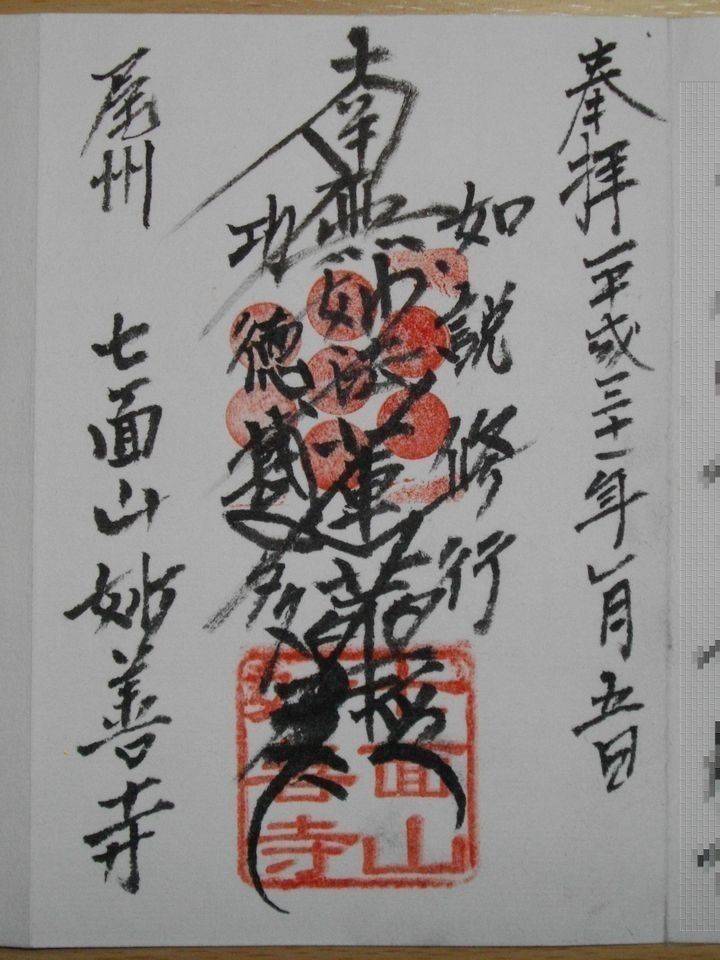 奉拝 平成三十一年一月五日
如説修行
南無妙法蓮華経
功徳甚多
尾州 七面山妙善寺
七面山
妙善寺